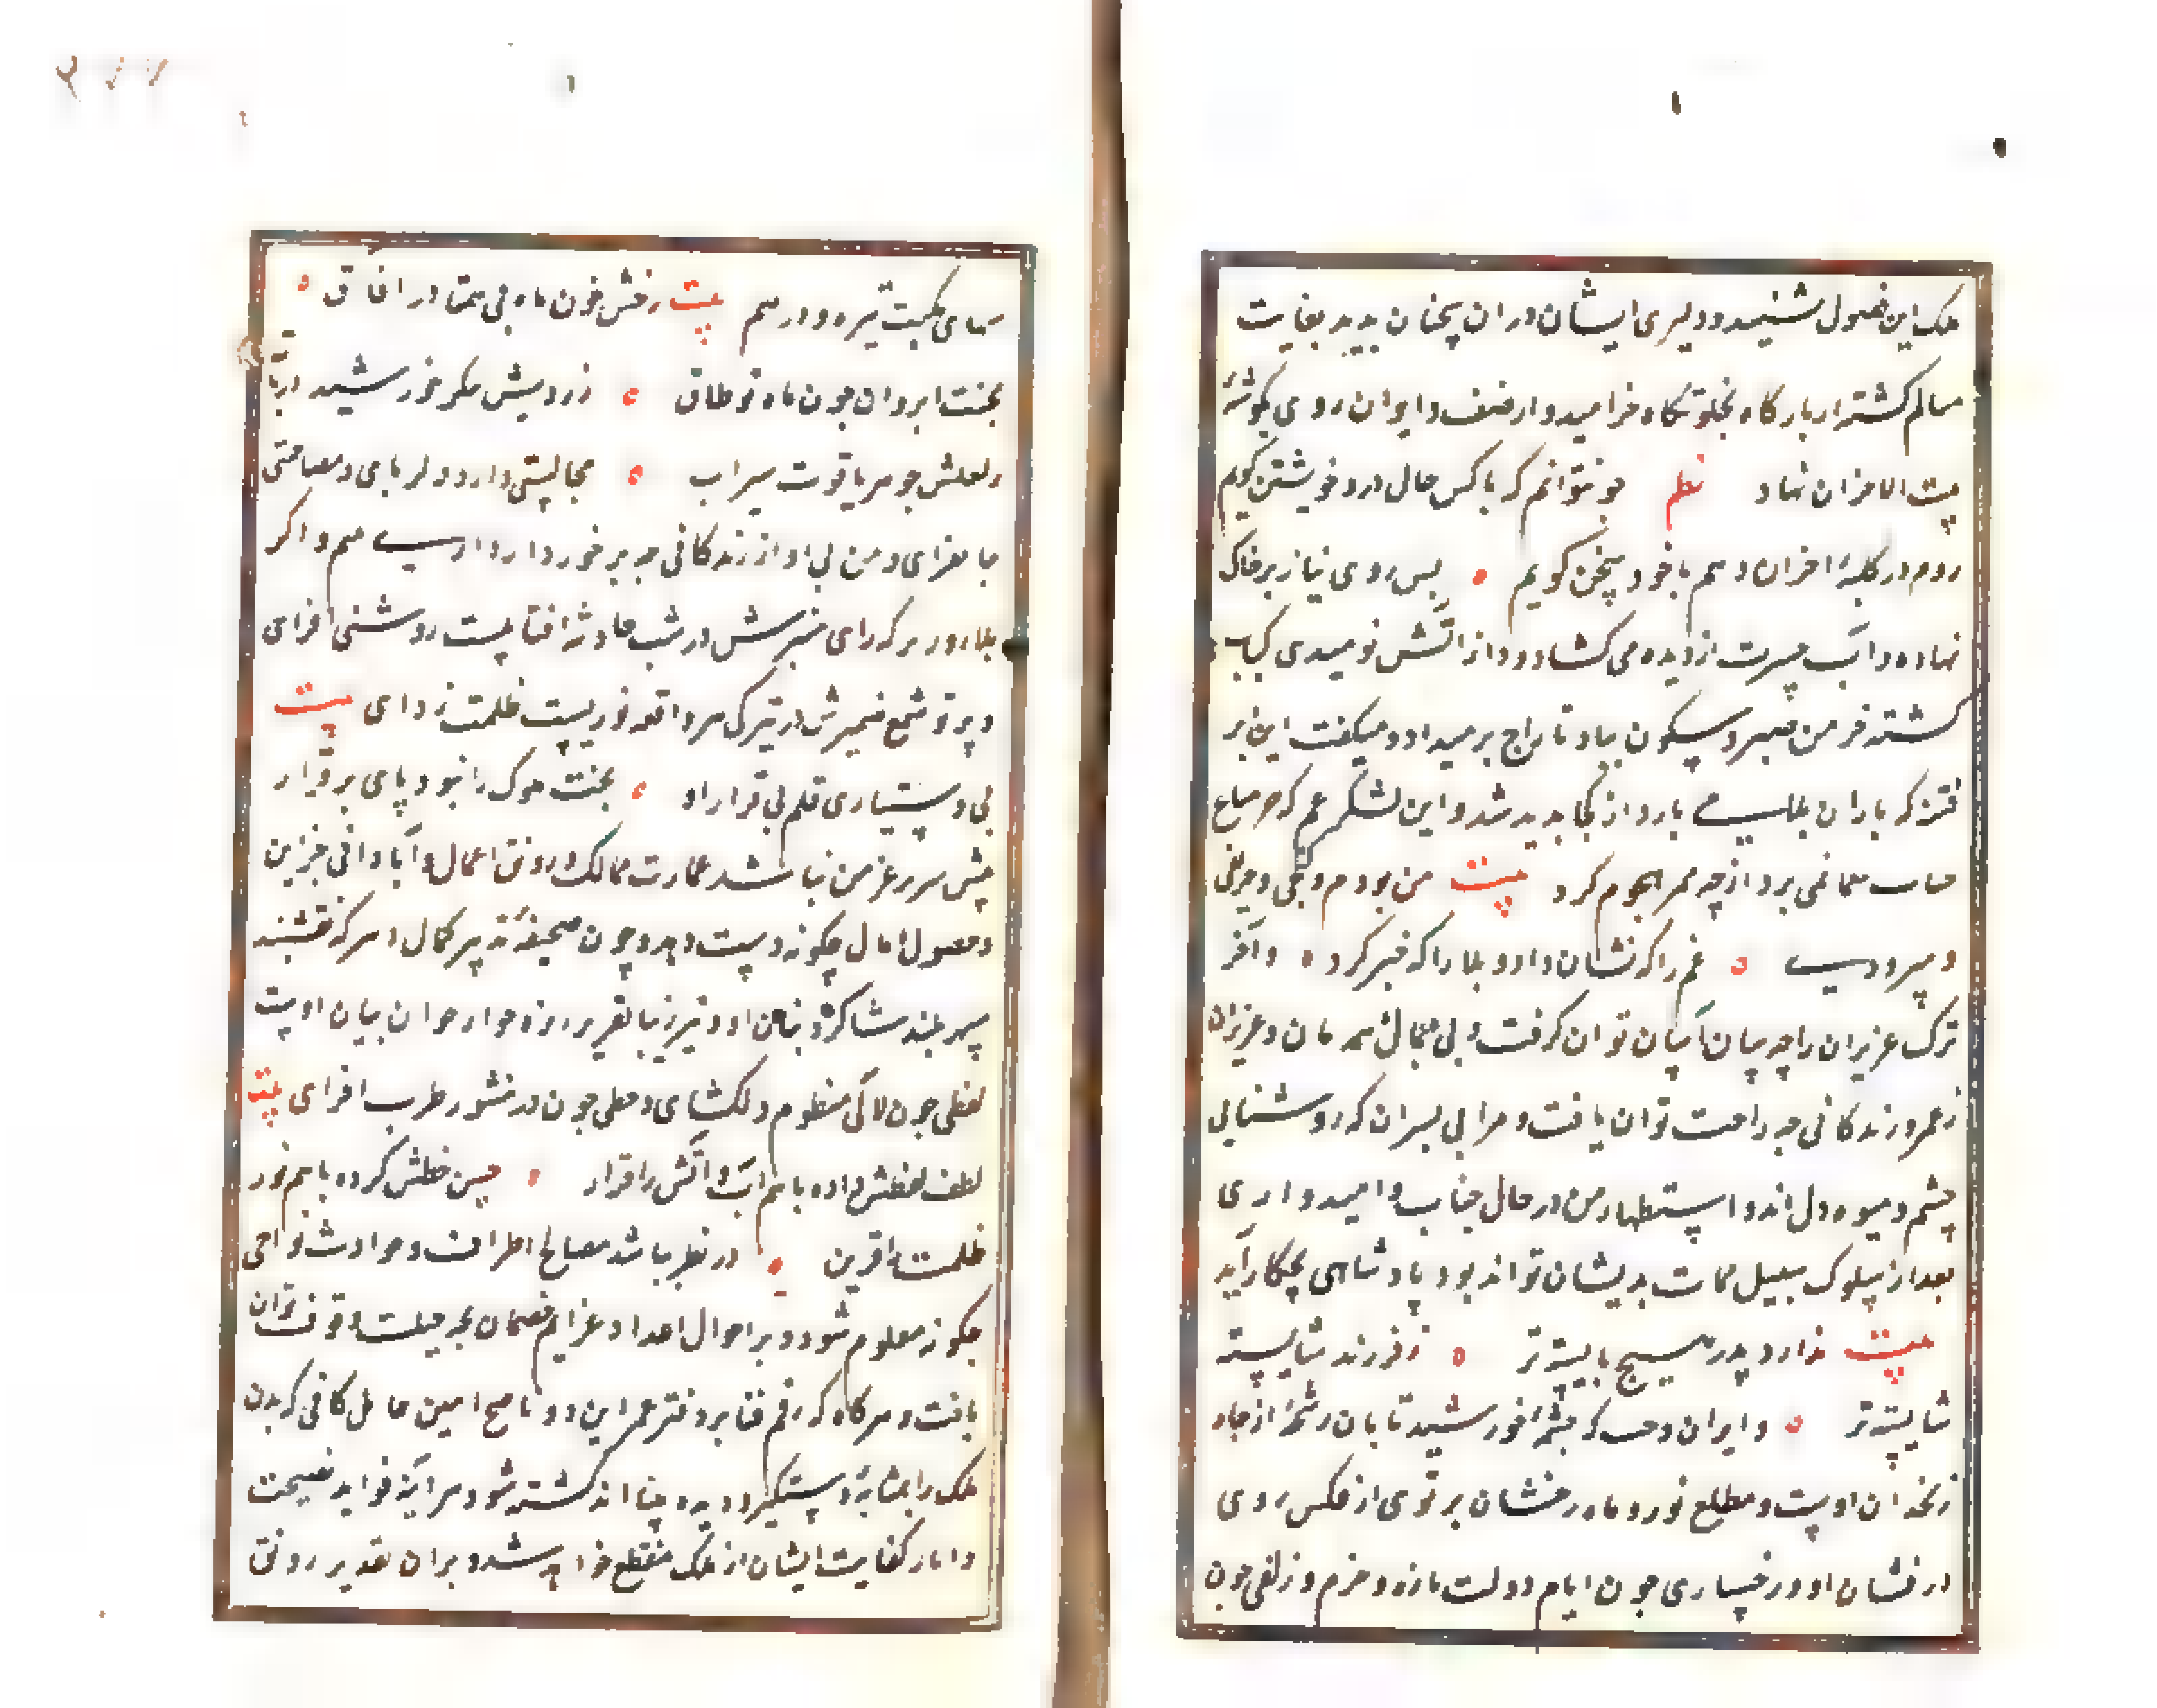 ملک این فصول شنید و دلیری ایشان در ان سخنان بدید بغایت
متالم کشته از بارکاه بخلوتکاه خرامید و از صف و ایوان روی بکوشهٔ
بیت الاحزان نهاد نظم چو نتوانم که با کس حال درد خویشتن کویم
روم در کلبهٔ احزان و هم با خود سخن کویم پس روی نیاز بر خاک
نهاده و آب حسرت از دیده می کشاد و دل از آتش نومیدی کباب
کشته خرمن صبر و سکون بباد تاراج برمیداد و میکفت این ابر
فتنه که باران بلا می بارد از کجا پدید شد و این لشکر غم که هر متاع
برد از چه ممر هجوم کرد بیت من بودم و کنجی و حریفی
و سرودی غم را که نشان داد و بلا را که خبر کرد و آخر
ترک عزیزان را چه سان آسان توان کرفت و بی جمال همدمان و عزیزان
ز عمر و زندکانی چه راحت توان یافت و مرا بی پسران که روشنایی
چشم و میوه دل اند و استظهار من در حال حیات و امیدواری
بعد از سلوک سبیل ممات بدیشان تواند بود پادشاهی بچکار آید
بیت ندارد پدر هیچ بایسته تر ز فرزند شایسته
شایسته تر و ایران دخت که چشمهٔ خورشید تابان رشحهٔ از چاه
زنخدان اوست و مطلع نور و ماه رخشان پرتوی از عکس روی
درفشان او و رخساری چون ایام دولت تازه و خرم و زلفی چون
شبهای نکبت تیره و درهم بیت رخش چون ماه بی همتا در آفاق
بجفت ابروان چون ماه نو طاق ز رویش عکس خورشید
و لعلش جوهر یاقوت سیراب مجالستی دارد دلربای و مصاحبتی
جانفزای و من بی او از زندکانی چه برخورداری دارم و اکر
بلار وزیر که رای منیرش در شب حادثه آفتابیست روشنی افزای
و پرتو شمع ضمیرش در تیرکی هر واقعه نوریست ظلمت زدای بیت
بی دستیاری قلم بی قرار او تخت ملوک را نبود پای برقرار
پیش سریر عز من نباشد عمارت ممالک و رونق اعمال و آبادانی خزاین
و حصول اموال چکونه دست دهد و چون صحیفهٔ تدبیر کمال دبیر که نقشبند
سپهر بلند شاکرد بنان او و تیر زیبا تقریر روزه خوار خوان بیان اوست
لفظی چون لآلی منظوم دلکشای و خطی چون در منثور طرب افزای بیت
لطف لفظش داده با هم آب و آتش را قرار حسن خطش کرده با هم نور
ظلمت را قرین در نظر نباشد مصالح اطراف و حوادث نواحی
چکونه معلوم شود و بر احوال اعدا و عزایم خصمان بچه حیلت وقوف توان
یافت و هرکاه که رقم فنا بر دفتر عمر این دو ناصح امین عامل کافی که بدن
ملک را بمثابهٔ دستکیر و دیدهٔ بینا اند کشیده شود هرآینه فواید نصیحت
و آثار کفایت ایشان از ملک منقطع خواهد شد و بر ان تقدیر رونق